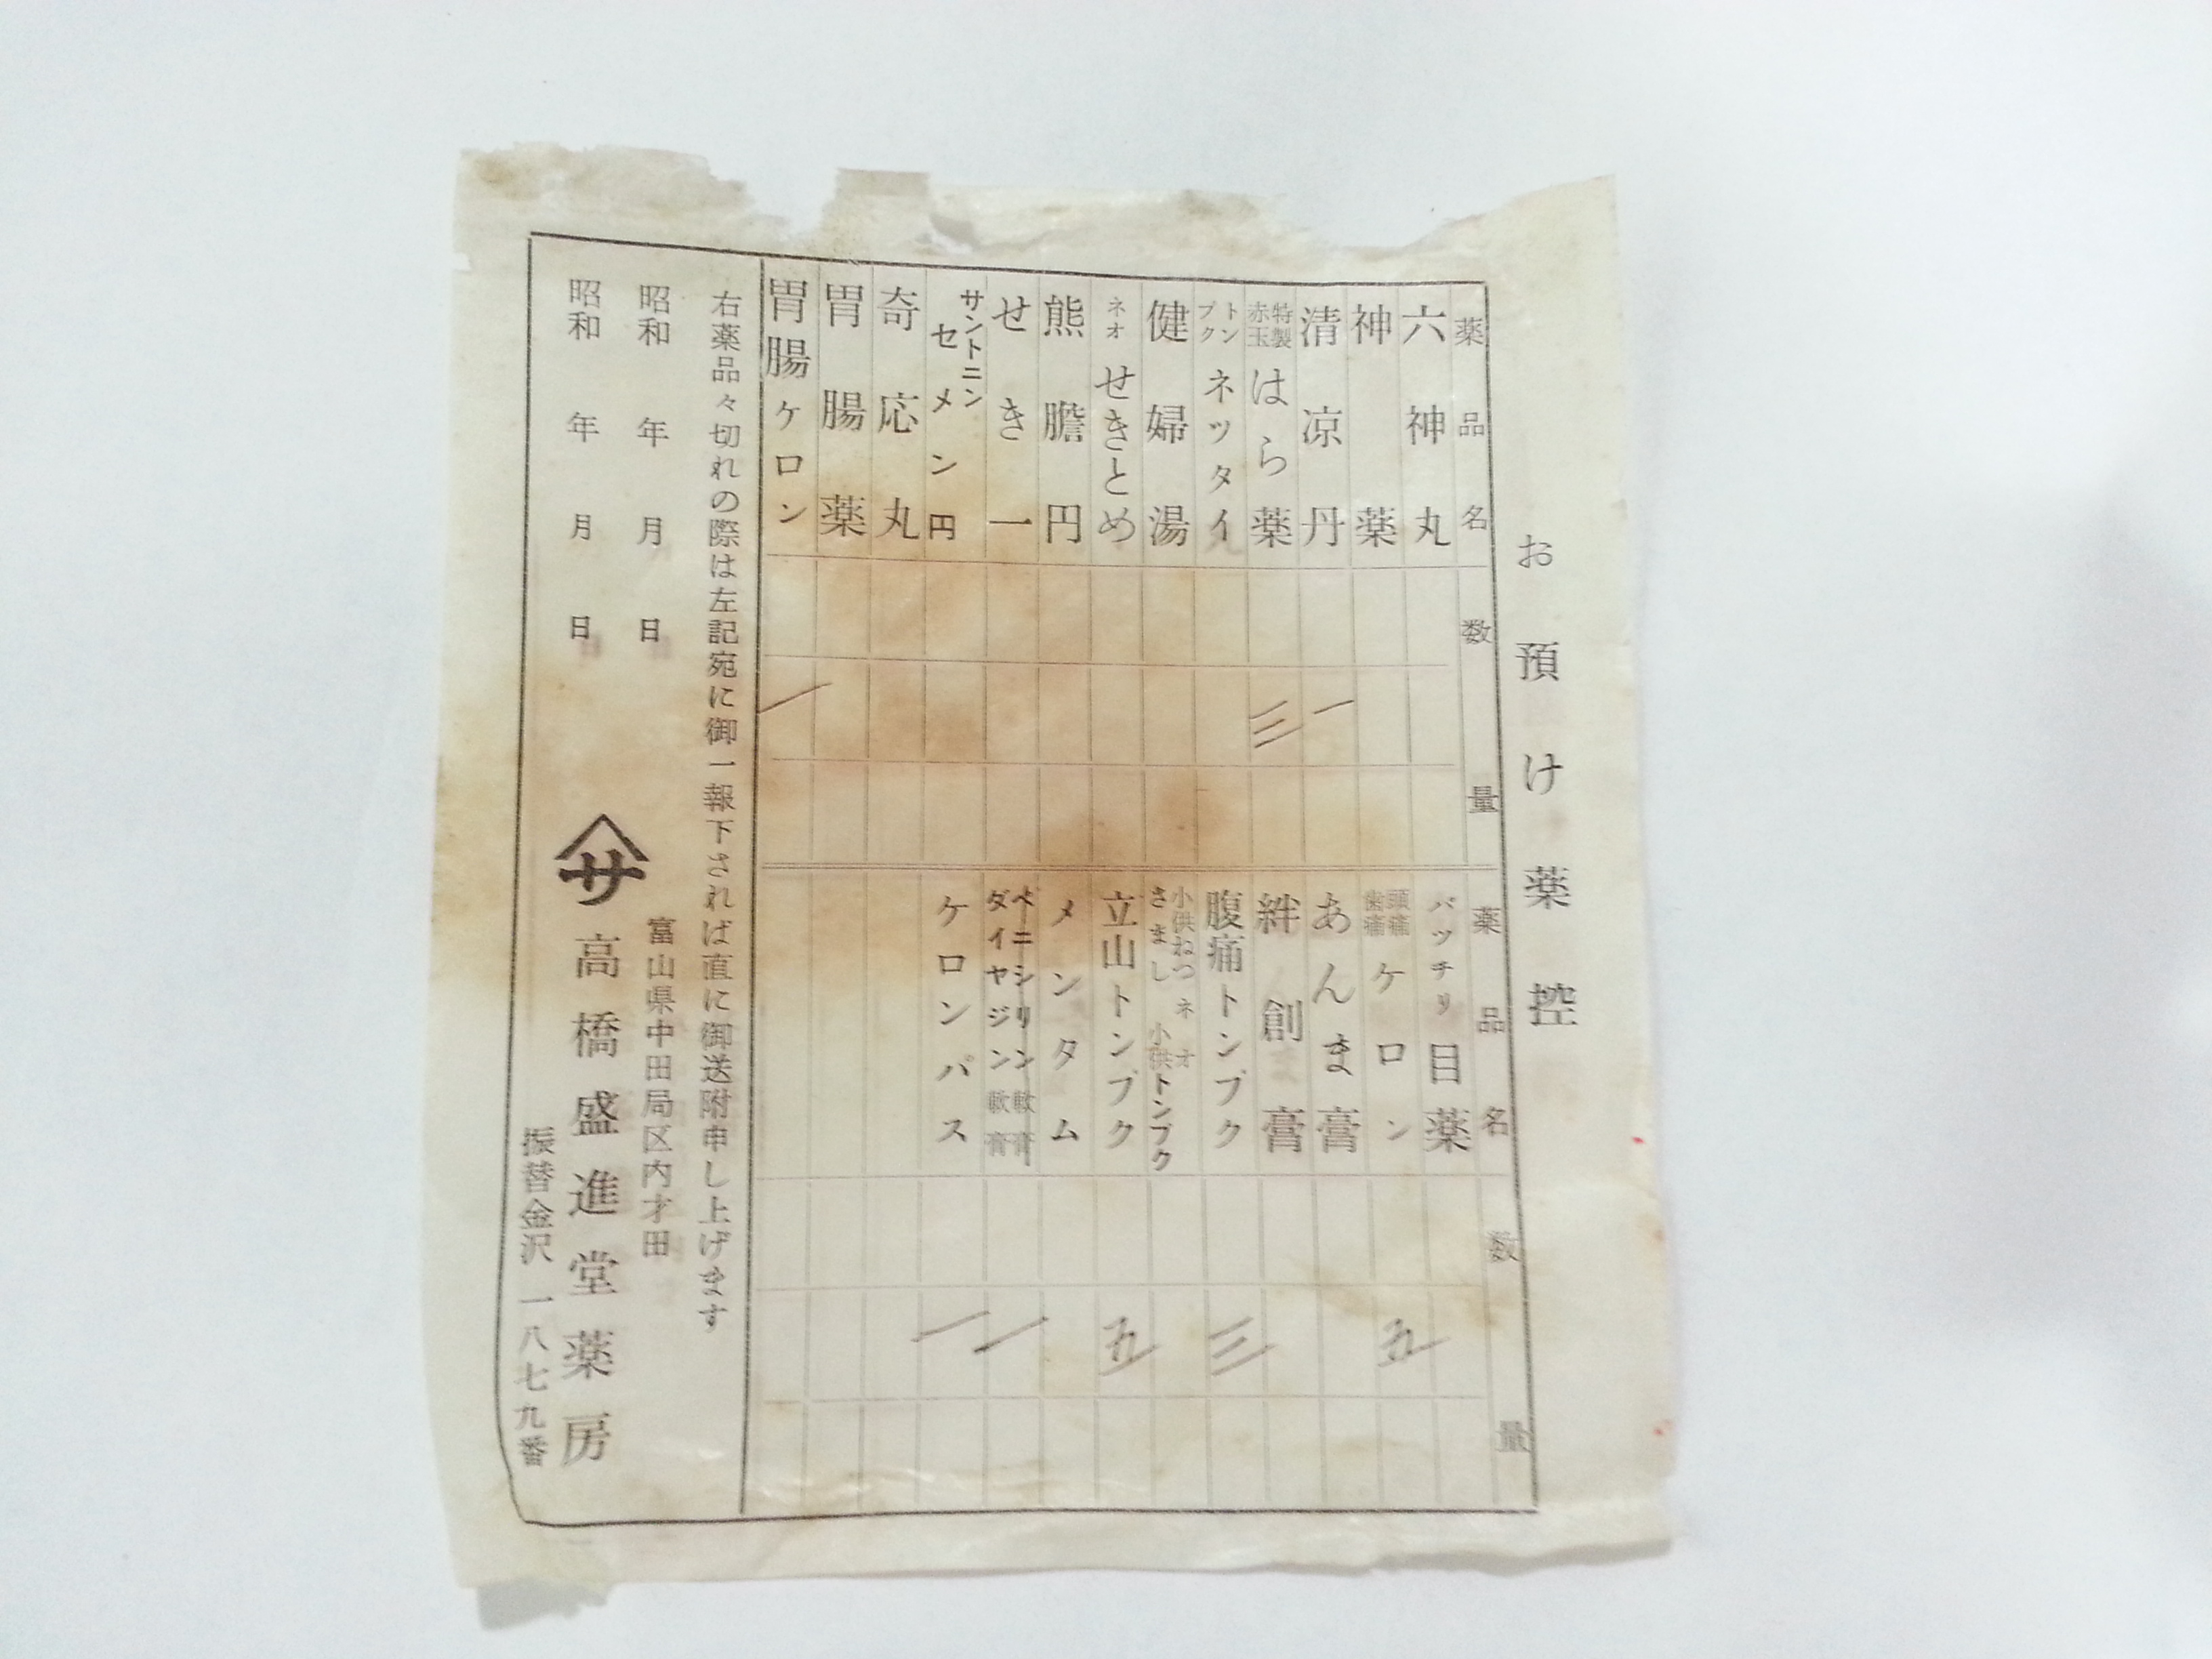 お預け薬控
薬品名 数量
六神丸
神薬
清凉丹 一
特製赤玉はら薬 三
トンプクネッタイ
健婦湯
ネオせきとめ
熊膽円
せき一
サントニンセメン円
奇応丸
胃腸薬
胃腸ケロン 一
薬品名 数量
パッチリ目薬
頭痛歯痛ケロン 五
あんま膏
絆創膏
腹痛トンプク 三
小供ねつさまし ネオ小供トンプク
立山トンプク 五
メンタム
ペニシリン軟膏ダイヤジン軟膏 一
ケロンパス 一
右薬品々切れの際は左記宛に御一報下されば直に御送附申し上げます
昭和 年 月 日
昭和 年 月 日
富山県中田局区内才田
サ 高橋盛進堂薬房
振替金沢一八七九番